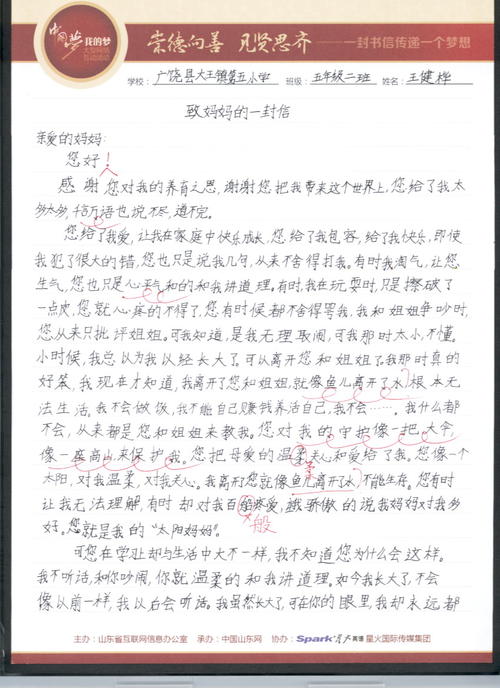 中国梦 我的梦
大型网络
互动活动
崇德向善 见贤思齐 —— 一封书信传递一个梦想
学校:广饶县大王镇第五小学 班级:五年级二班 姓名:王健桦
致妈妈的一封信
亲爱的妈妈:
您好!
感谢您对我的养育之恩,谢谢您把我带来这个世界上,您给了我太
多太多,千言万语也说不尽,道不完。
您给了我爱,让我在家庭中快乐成长,您给了我包容,给了我快乐,即使
我犯了很大的错,您也只是说我几句,从来不舍得打我。有时我淘气,让您
生气,您也只是心平气和的和我讲道理。有时,我在玩耍时,只是擦破了
一点皮,您就心疼的不得了,您有时候都不舍得骂我,我和姐姐争吵时,
您从来只批评姐姐。可我知道,是我无理取闹,可我那时太小,不懂。
小时候,我总以为我以经长大了,可以离开您和姐姐了,我那时真的
好笨,我现在才知道,我离开了您和姐姐,就像鱼儿离开了水,根本无
法生活。我不会做饭,我不能自己赚钱养活自己,我不会……。我什么都
不会,从来都是您和姐姐来教我。您对我的守护像一把大伞,
像一座高山来保护我。您把母爱的温柔关心和爱给了我。您像一个
太阳,对我温柔,对我关心。我离开您就像鱼儿离开了水,不能生存。您有时
让我无法理解,有时却对我百般疼爱,我骄傲的说我妈妈对我多
好。您就是我的“太阳妈妈”。
可您在学习上却与生活中大不一样,我不知道您为什么会这样。
我不听话,和你吵闹,你就温柔的和我讲道理。如今我长大了,不会
像以前一样,我以后会听话。我虽然长大了,可在你的眼里,我却永远都
主办:山东省互联网信息办公室 承办:中国山东网 协办:Spark 星火英语 星火国际传媒集团